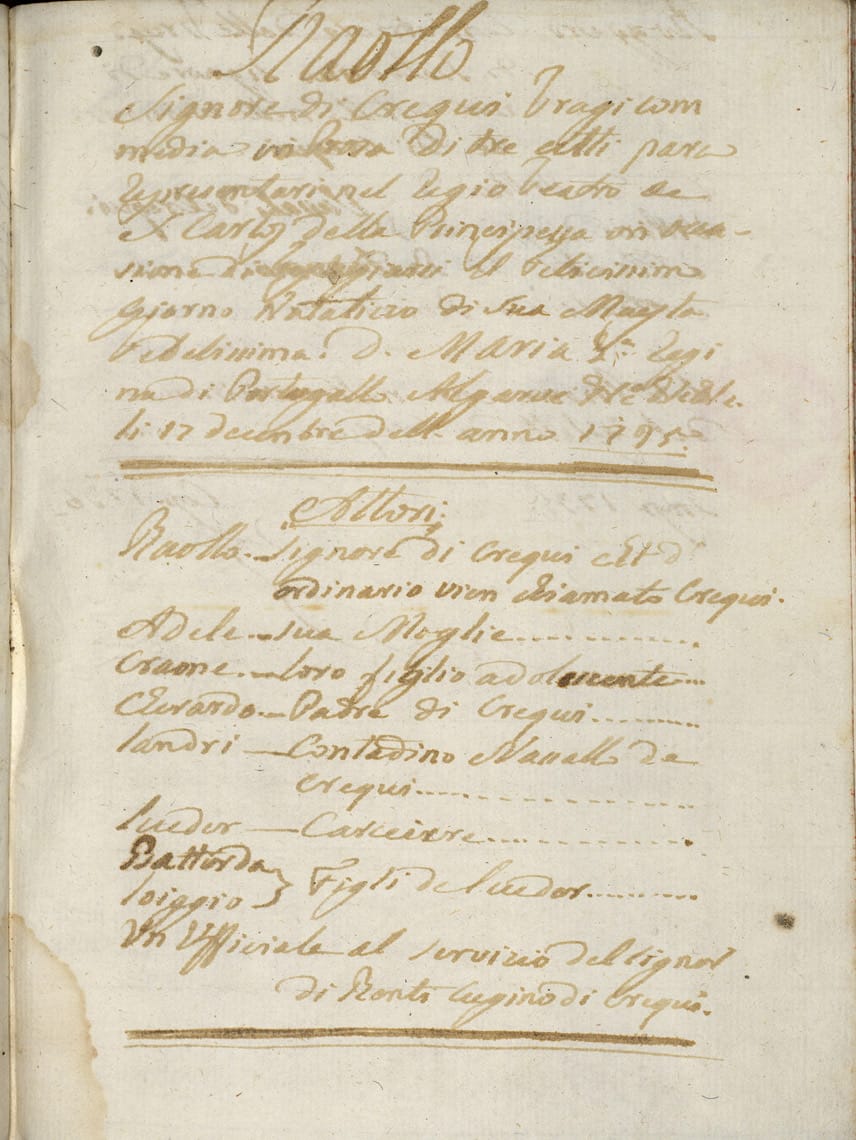 Raollo
Signore di Crequi Tragicom
media in Prosa di tre atti para
representarsi nel Regio Teatro de
S. Carlo della Principessa in occa-
sione di il felicissimo
Giorno Natalicio di Sua Maesta
Fedelissima. D. Maria 1.a Regi
na di Portugallo Algarve
li 17 decembre dell anno 1795.
Attori
Raollo. Signore di Crequi Et d
ordinario vien chiamato Crequi.
Adele. Sua Moglie
Craone. loro figlio adolescente
Gerardo. Padre di Crequi
landri Contadino Vassallo de
Crequi
ludor Carceirre
Battorda
loiggio } Figli de ludor
Un Ufficiale al servicio del Signor
di Renti Cugino di Crequi.